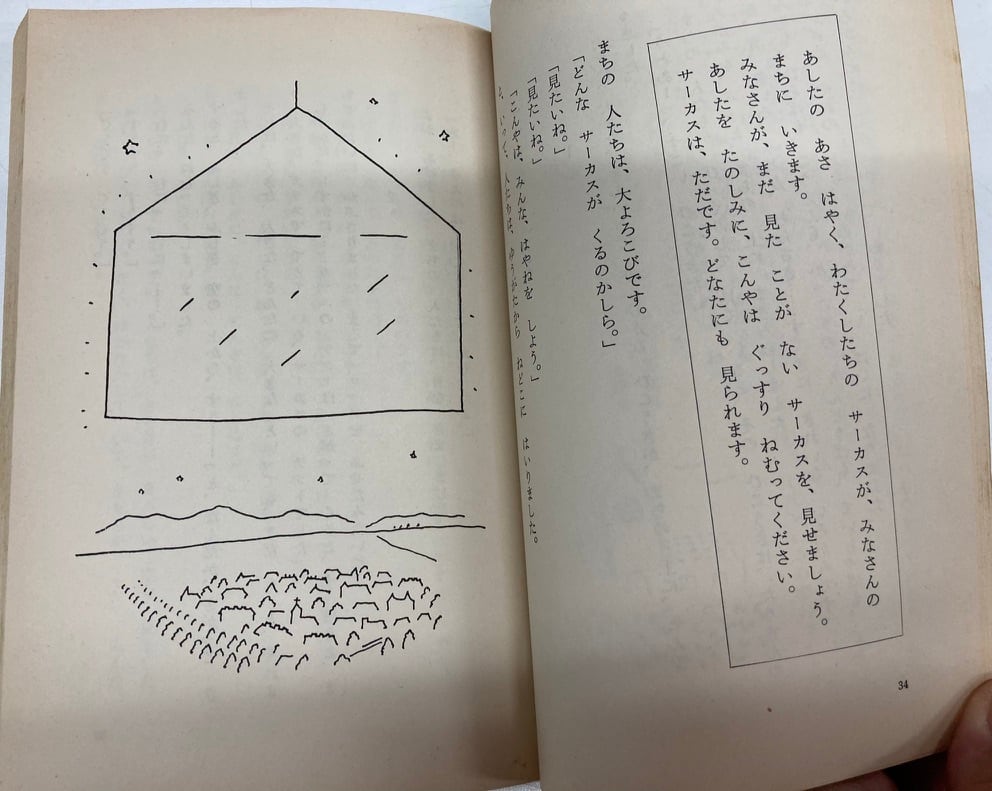 あしたの あさ はやく、わたくしたちの サーカスが、みなさんの
まちに いきます。
みなさんが、まだ 見た ことが ない サーカスを、見せましょう。
あしたを たのしみに、こんやは ぐっすり ねむってください。
サーカスは、ただです。どなたにも 見られます。
まちの 人たちは、大よろこびです。
「どんな サーカスが くるのかしら。」
「見たいね。」
「見たいね。」
「こんやは、みんな、はやねを しよう。」
人たちは、ゆうがたから ねどこに はいりました。
34